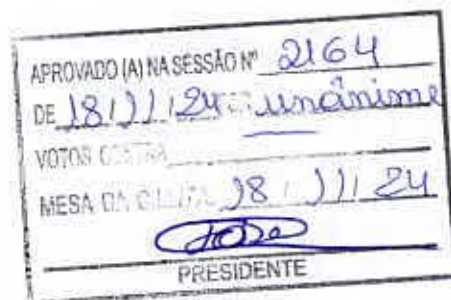 APROVADO (A) NA SESSÃO Nº 2164
DE 18/11/24 unânime
VOTOS CONTRA
MESA DA 18/11/24
PRESIDENTE